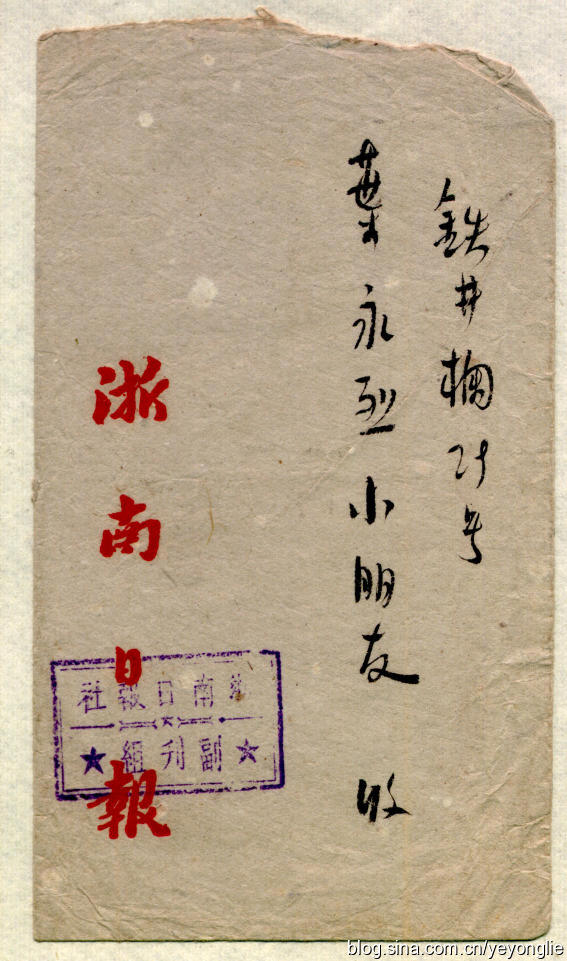 鉄井欄号
葉永烈小朋友 收
浙南日報
浙南日報社
副刊組
blog.sina.com.cn/yeyonglie